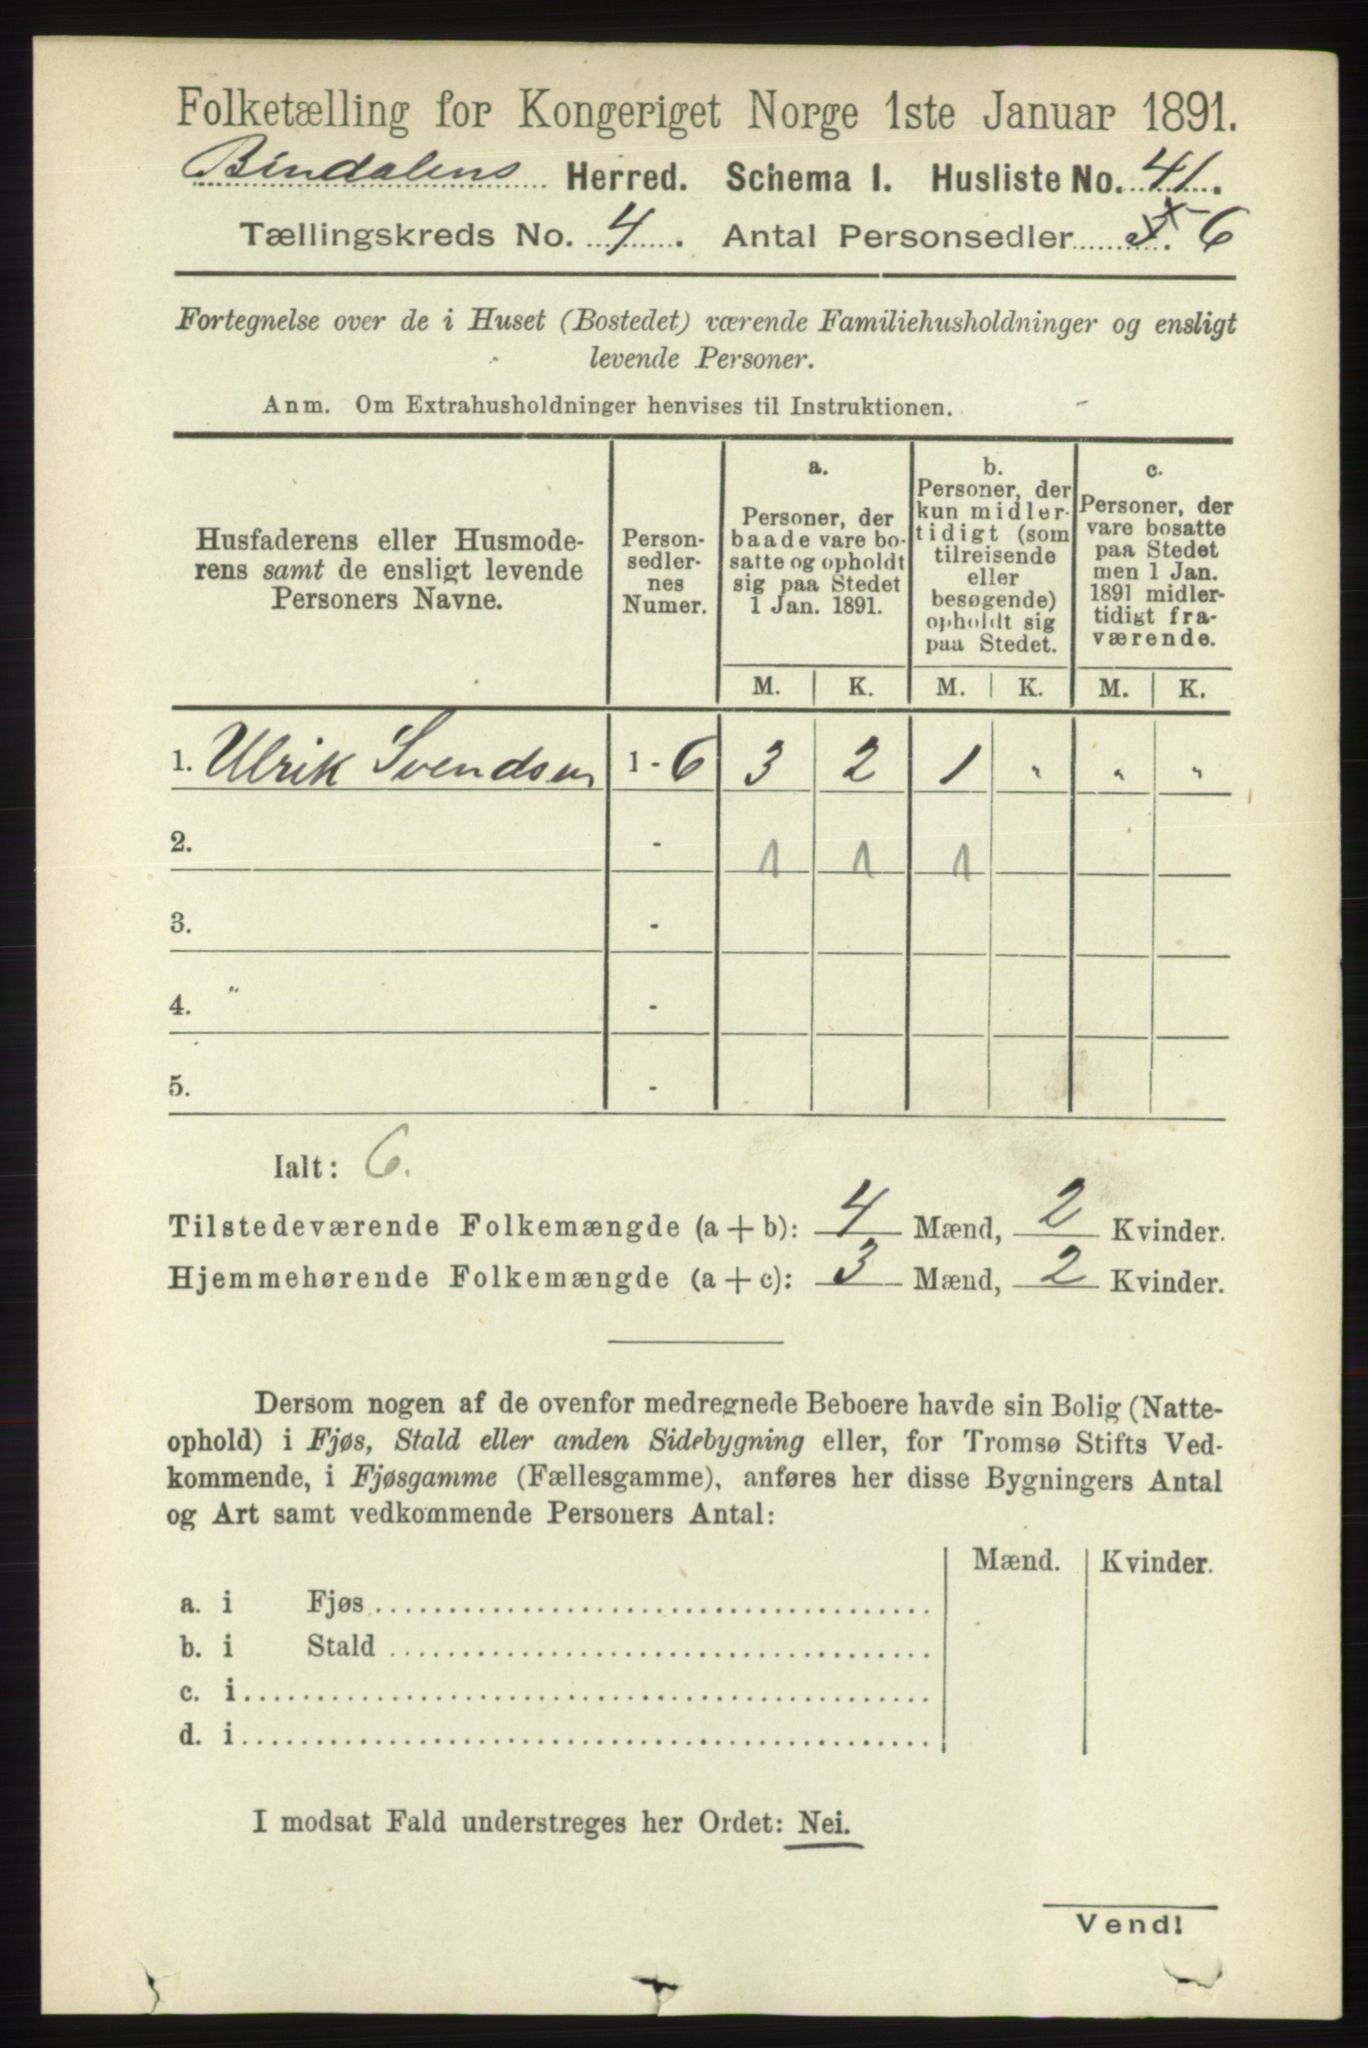 Folketælling for Kongeriget Norge 1ste Januar 1891.
Bindalens Herred. Schema I. Husliste No. 41.
Tællingskreds No. 4. Antal Personsedler 5. 6
Fortegnelse over de i Huset (Bostedet) værende Familiehusholdninger og ensligt
levende Personer.
Anm. Om Extrahusholdninger henvises til Instruktionen.
Husfaderens eller Husmode-
rens samt de ensligt levende
Personers Navne.
Person-
sedler-
nes
Numer.
a.
Personer, der
baade vare bo-
satte og opholdt
sig paa Stedet
1 Jan. 1891.
b.
Personer, der
kun midler-
tidigt (som
tilreisende
eller
besøgende)
opholdt sig
paa Stedet.
c.
Personer, der
vare bosatte
paa Stedet
men 1 Jan.
1891 midler-
tidigt fra-
værende.
M. K. M. K. M. K.
1. Ulrik Svendsen 1 - 6 3 2 1 " " "
2. - 1 1 1
3. -
4. " -
5. -
Ialt: 6.
Tilstedeværende Folkemængde (a + b): 4 Mænd, 2 Kvinder.
Hjemmehørende Folkemængde (a + c): 3 Mænd, 2 Kvinder.
Dersom nogen af de ovenfor medregnede Beboere havde sin Bolig (Natte-
ophold) i Fjøs, Stald eller anden Sidebygning eller, for Tromsø Stifts Ved-
kommende, i Fjøsgamme (Fællesgamme), anføres her disse Bygningers Antal
og Art samt vedkommende Personers Antal:
Mænd. Kvinder.
a. i Fjøs
b. i Stald
c. i
d. i
I modsat Fald understreges her Ordet: Nei.
Vend!